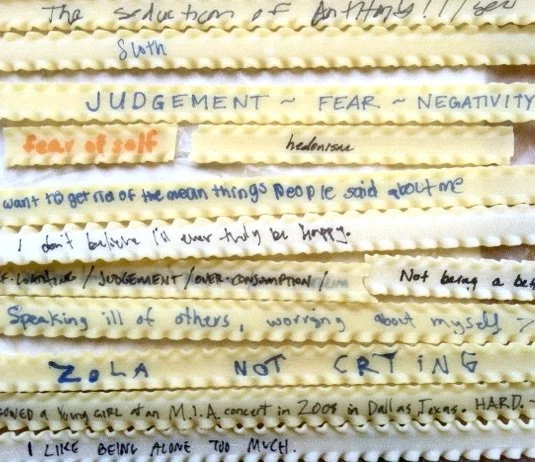 The seduction of
Sloth
JUDGEMENT ~ FEAR ~ NEGATIVITY
fear of self hedonism
want to get rid of the mean things people said about me
I don't believe I'll ever truly be happy.
/ JUDGEMENT / OVER-CONSUMPTION / Not being a
Speaking ill of others, worrying about myself
ZOLA NOT CRTING
a YOUNG GIRL at an M.I.A concert in 2008 in Dallas, Texas. HARD.
I LIKE BEING ALONE TOO MUCH.